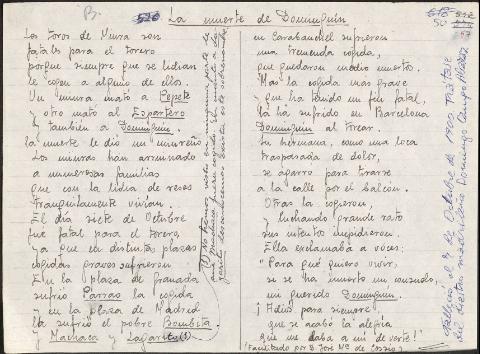 B.
520
La muerte de Dominguín
50
Los toros de Miura son
fatales para el torero
porque siempre que se lidian
le cogen a alguno de ellos.
Un miura mató a Pepete
y otro mató al Espartero
y también a Dominguín.
la muerte le dió un mureño
Los miuras han arruinado
a numerosas familias
que con la lidia de reses
tranquilamente vivían.
El día siete de Octubre
fué fatal para el toreo,
ya que en distintas plazas
cogidas graves sufrieron.
En la plaza de Granada
sufrió Parrao la cogida
y en la plaza de Madrid
la sufrió el pobre Bombita
y Machaca y Lagartito (1)
en Carabanchel sufrieron
una tremenda cogida,
que quedaron medio muertos.
Mas la cogida más grave
y que ha tenido un fin fatal,
la ha sufrido en Barcelona
Dominguín al torear.
Su hermana, como una loca
traspasada de dolor,
se agarró para tirarse
a la calle por el balcón.
Otras la cogieron,
y luchando grande rato
sus intentos impidieron.
Ella exclamaba a voces:
"Para qué quiero vivir,
si se ha muerto mi
mi querido Dominguín.
¡Adiós para siempre
que se acabó la alegría
que me daba a mí de verte!"
Facilitado por D. José Mª de Cossío
(1) No hemos visto en ninguna parte
que Machaca fuera cogido
Falleció el 7 de Octubre de 1900. Trátase
del diestro madrileño Domingo Campo Álvarez